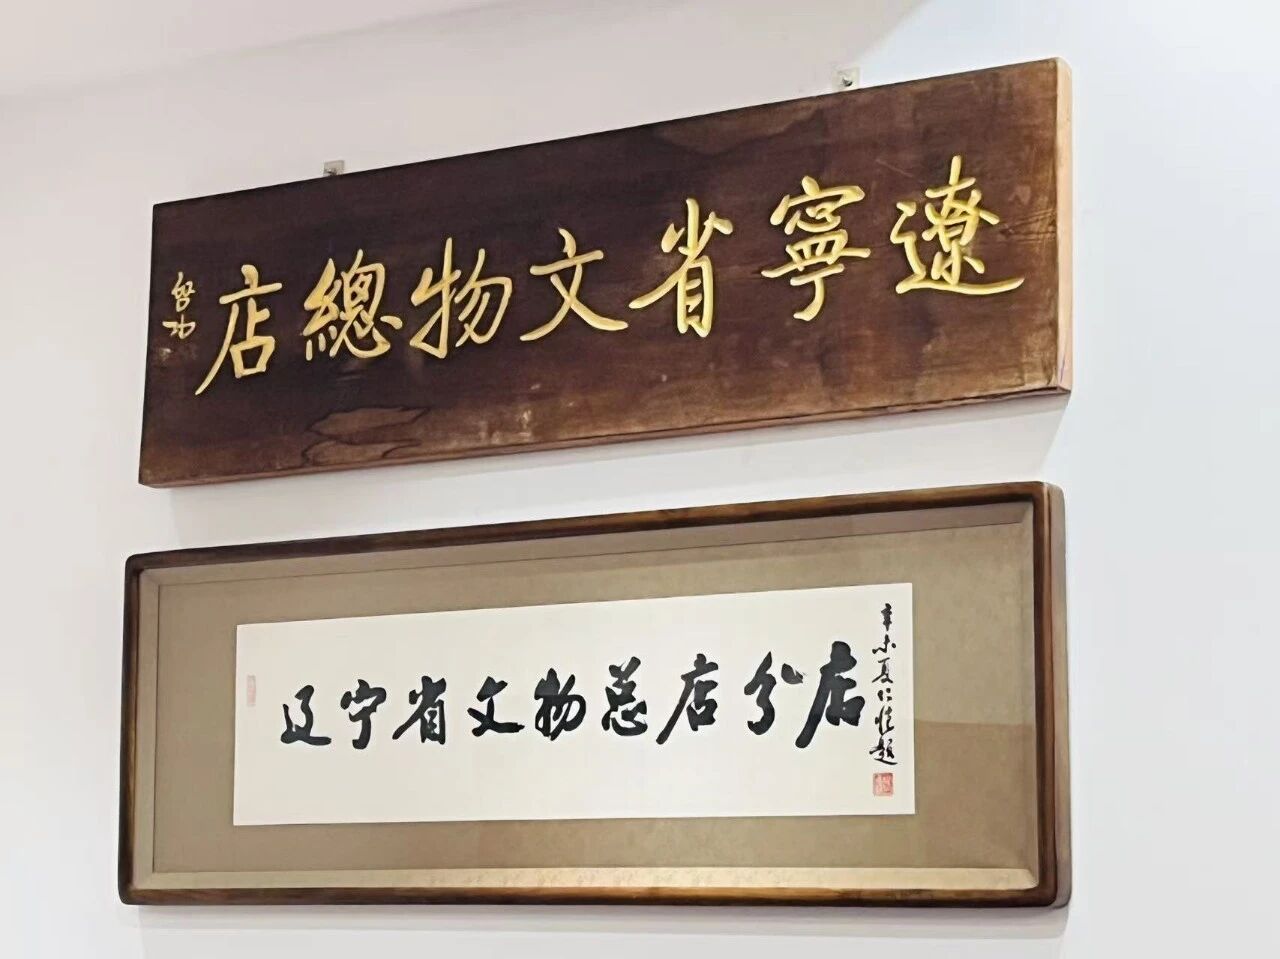 遼寧省文物總店
啓功
辽宁省文物总店分店
辛未夏仁恺题